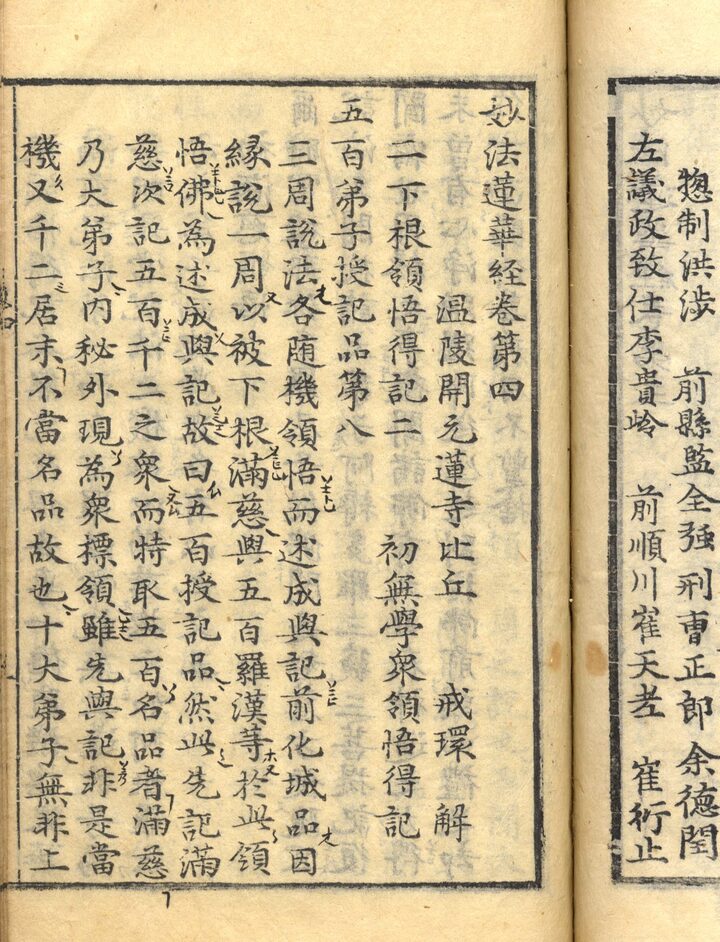 惣制洪渉 前縣監全强 刑曹正郎 余德閏
左議政致仕李貴岭 前順川崔天老 崔衍止
妙法蓮華経卷第四
温陵開元蓮寺比丘 戒環 解
二下根領悟得記二 初無學衆領悟得記
五百弟子授記品第八
三周說法各随機領悟而述成與記前化城品因
縁說一周以被下根滿慈與五百羅漢等於此領
悟佛為述成與記故曰五百授記品然此先記滿
慈次記五百千二之衆而特取五百名品者滿慈
乃大弟子内秘外現為衆標領雖先與記非是當
機又千二居末不當名品故也十大弟子無非上